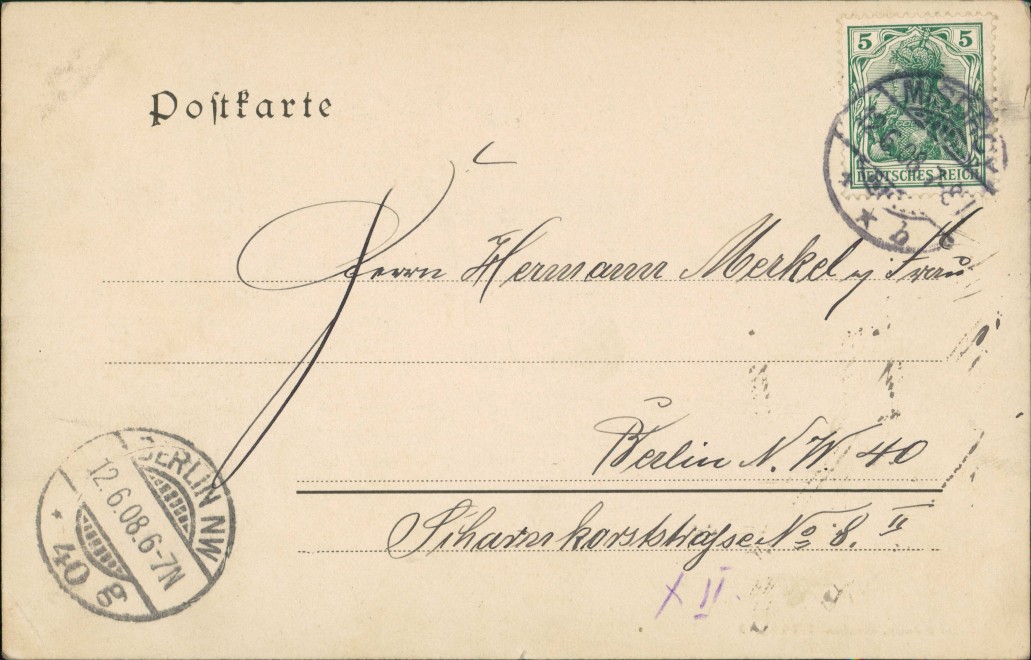 Postkarte
5 5
DEUTSCHES REICH
b
Herrn Hermann Merkel u Frau
Berlin N.W 40
Scharnhorststraße No 8. II
X II.
BERLIN NW
12.6.08.6-7N
* 40 g